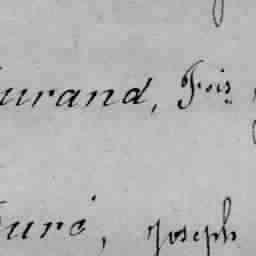 urand, Frs.
uré, Joseph